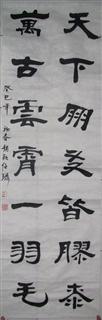 天下朋友皆膠桼
萬古雲霄一羽毛
癸巳年